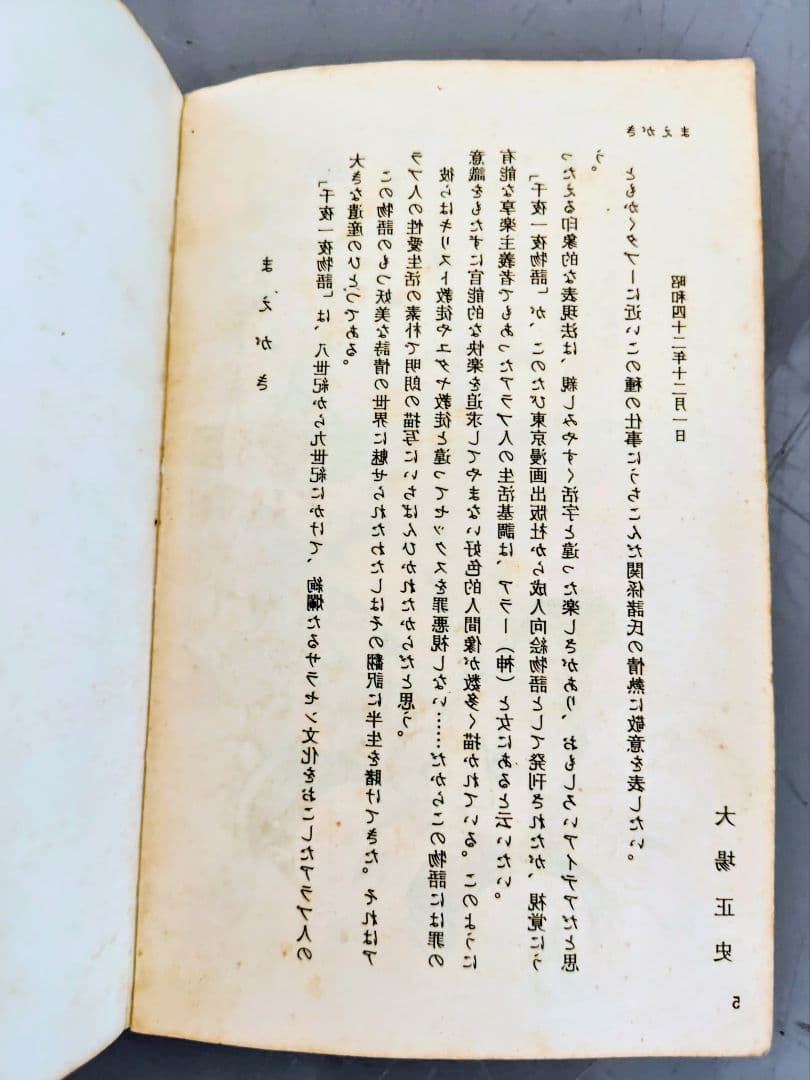 まえがき
まえがき
「千夜一夜物語」は、八世紀から九世紀にかけて、絢爛たるサラセン文化をおこしたアラブ人の
大きな遺産のひとつである。
この物語のもつ妖美な詩情の世界に魅せられたわたしはその翻訳に半生を賭けてきた。それはア
ラブ人の性愛生活の素朴で明朗の描写にいちばんひかれたからだと思う。
彼らはキリスト教徒やユダヤ教徒と違ってセックスを罪悪視しない……だからこの物語には罪の
意識をもたずに官能的な快楽を追求してやまない好色的人間像が数多く描かれている。このように
有能な享楽主義者でもあったアラブ人の生活基調は、アラー（神）と女にあると云いたい。
「千夜一夜物語」が、このたび東京漫画出版社から成人向絵物語として発刊されたが、視覚にう
ったえる印象的な表現法は、親しみやすく活字と違った楽しさがあり、おもしろいアイデアだと思
う。
ともかくタブーに近いこの種の仕事にうちこんだ関係諸氏の情熱に敬意を表したい。
昭和四十二年十二月一日
大場正史
5